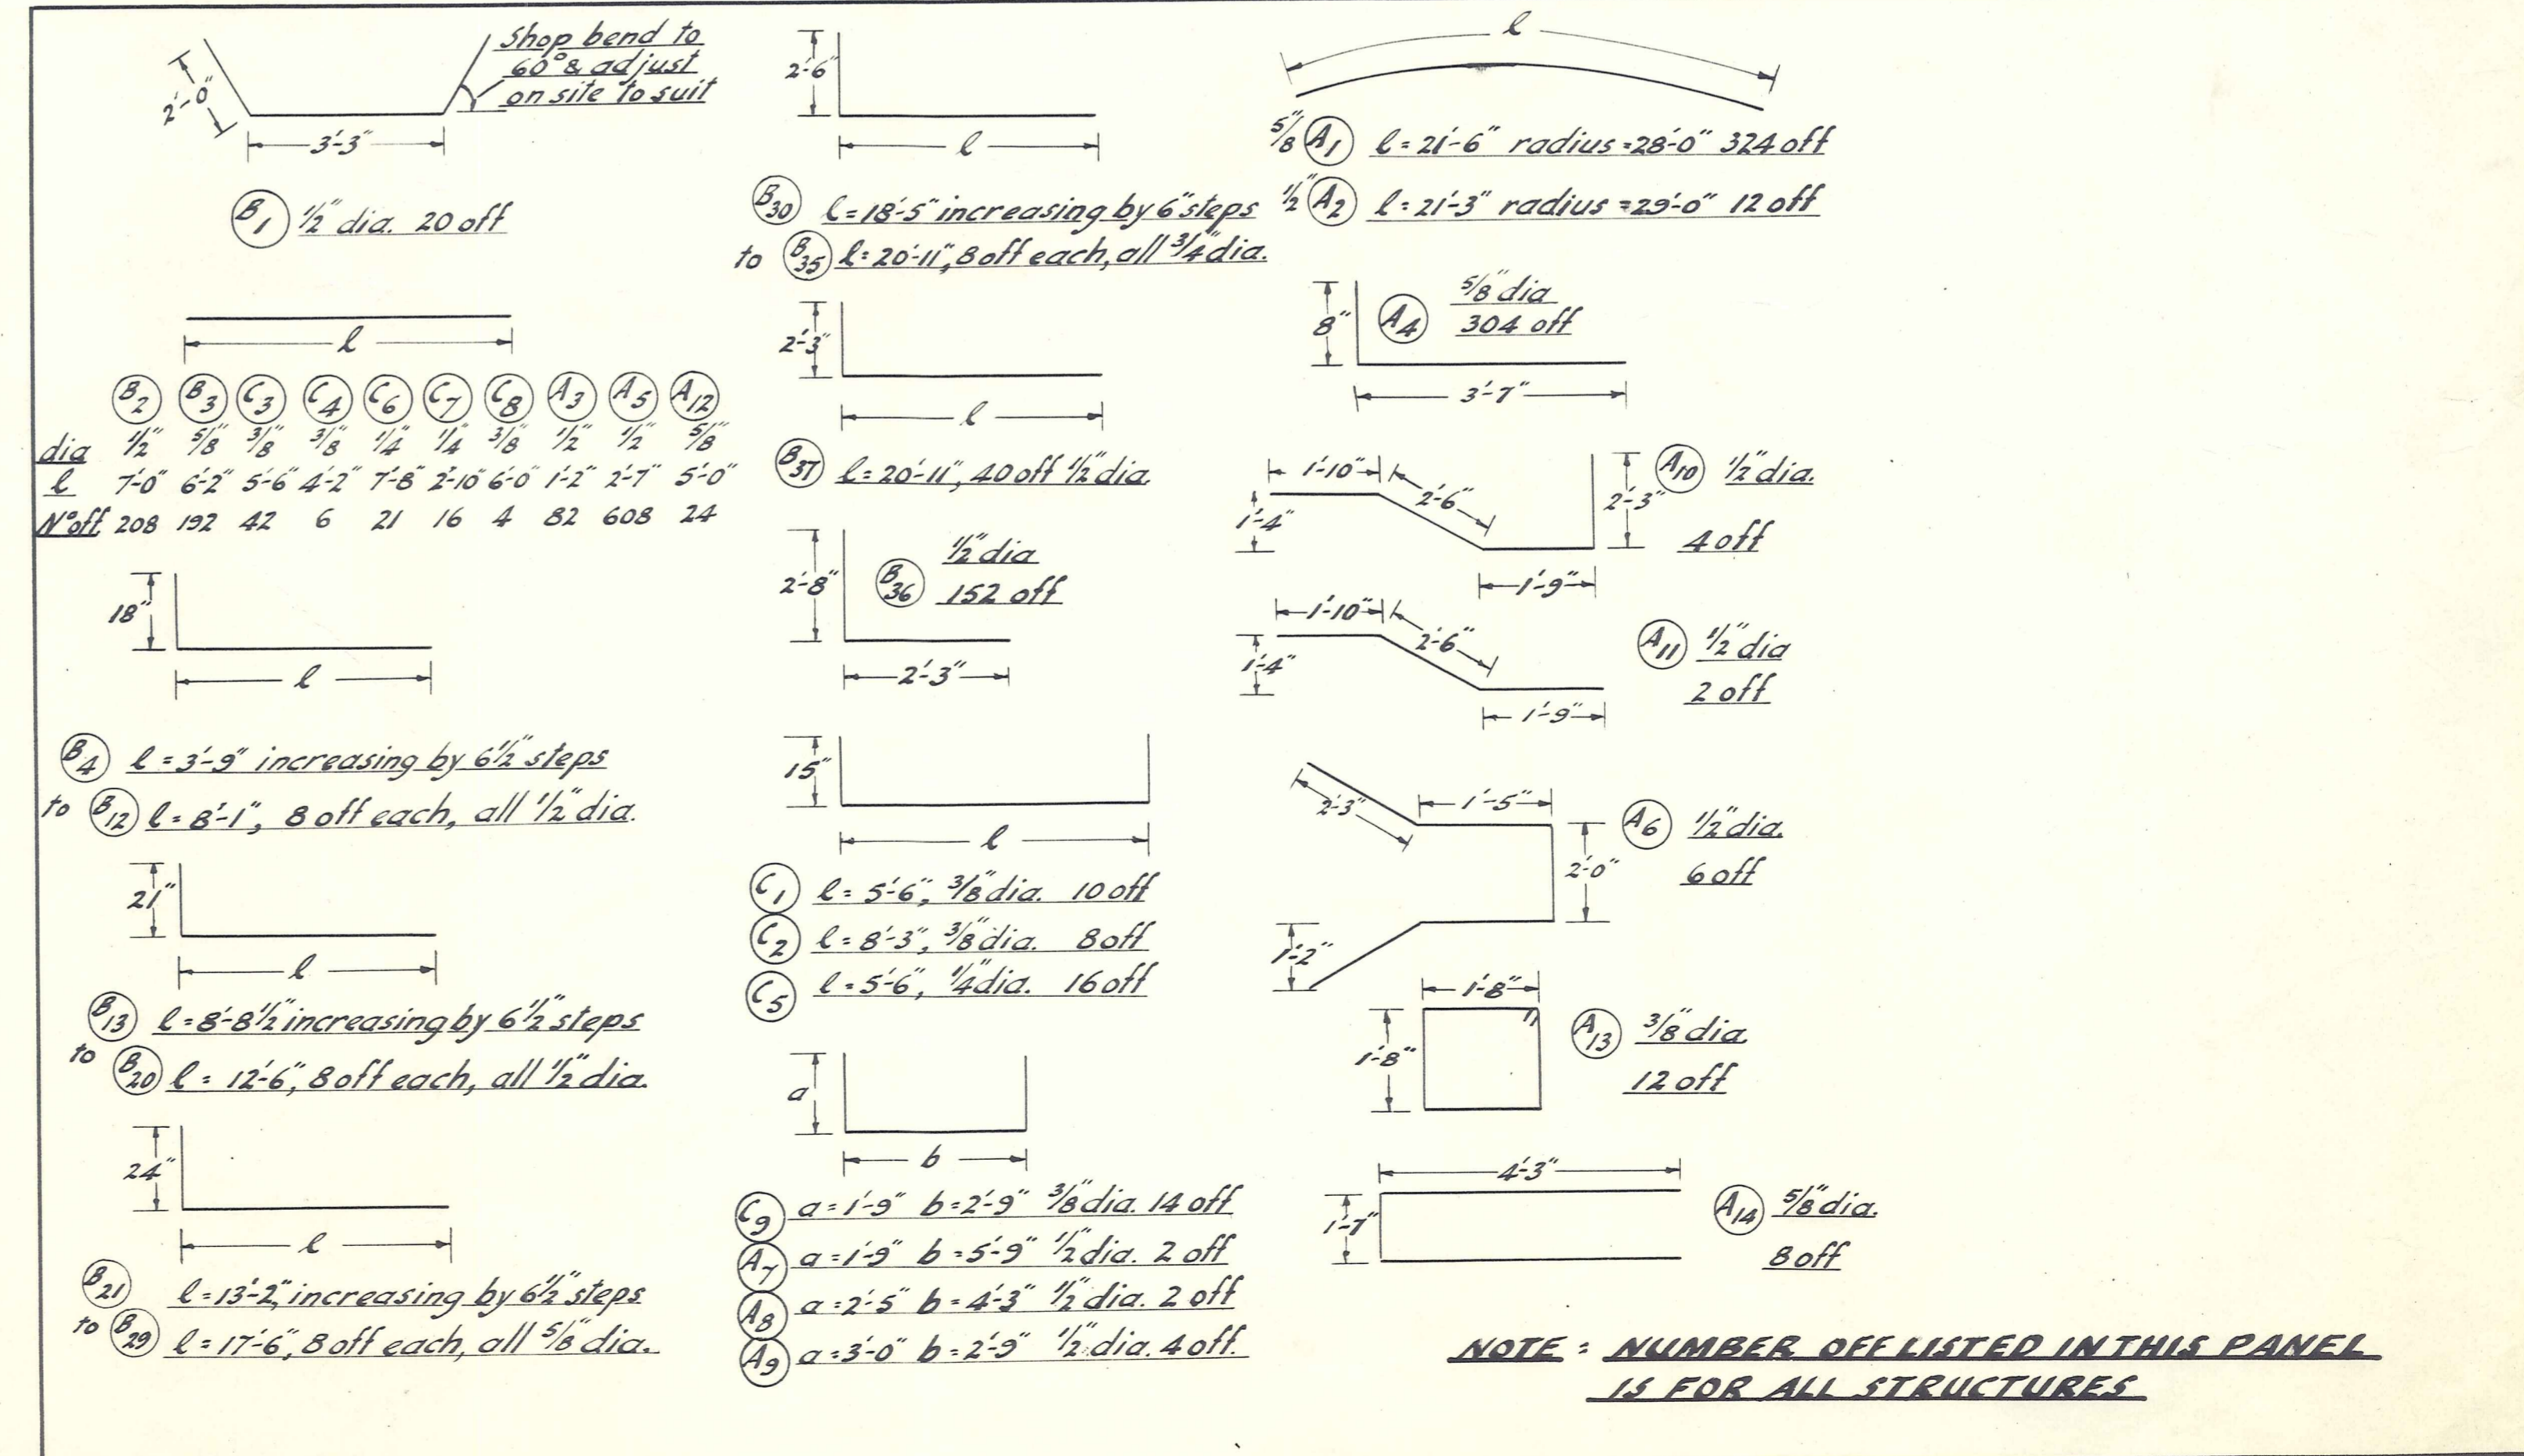 Shop bend to
60° & adjust
on site to suit
2'-0"
3'-3"
B1 1/2" dia. 20 off
l
B2 B3 C3 C4 C6 C7 C8 A3 A5 A12
dia 1/2" 5/8" 3/8" 3/8" 1/4" 1/4" 3/8" 1/2" 1/2" 5/8"
l 7'-0" 6'-2" 5'-6" 4'-2" 7'-8" 2'-10" 6'-0" 1'-2" 2'-7" 5'-0"
No off 208 192 42 6 21 16 4 82 608 24
18"
l
B4 l = 3'-9" increasing by 6 1/2" steps
to B12 l = 8'-1", 8 off each, all 1/2" dia.
21"
l
B13 l = 8'-8 1/2" increasing by 6 1/2" steps
to B20 l = 12'-6", 8 off each, all 1/2" dia.
24"
l
B21 l = 13'-2", increasing by 6 1/2" steps
to B29 l = 17'-6", 8 off each, all 5/8" dia.
2'-6"
l
B30 l = 18'-5" increasing by 6" steps
to B35 l = 20'-11", 8 off each, all 3/4" dia.
2'-3"
l
B37 l = 20'-11", 40 off 1/2" dia.
2'-8"
B36 1/2" dia
152 off
2'-3"
15"
l
C1 l = 5'-6", 3/8" dia. 10 off
C2 l = 8'-3", 3/8" dia. 8 off
C5 l = 5'-6", 1/4" dia. 16 off
a
b
C9 a = 1'-9" b = 2'-9" 3/8" dia. 14 off
A7 a = 1'-9" b = 5'-9" 1/2" dia. 2 off
A8 a = 2'-5" b = 4'-3" 1/2" dia. 2 off
A9 a = 3'-0" b = 2'-9" 1/2" dia. 4 off.
l
5/8" A1 l = 21'-6" radius = 28'-0" 324 off
1/2" A2 l = 21'-3" radius = 29'-0" 12 off
8"
A4 5/8" dia
304 off
3'-7"
1'-10" 2'-6"
1'-4"
2'-3"
1'-9"
A10 1/2" dia.
4 off
1'-10" 2'-6"
1'-4"
1'-9"
A11 1/2" dia
2 off
2'-3" 1'-5"
2'-0"
1'-2"
A6 1/2" dia.
6 off
1'-8"
1'-8"
A13 3/8" dia.
12 off
4'-3"
1'-7"
A14 5/8" dia.
8 off
NOTE : NUMBER OFF LISTED IN THIS PANEL
IS FOR ALL STRUCTURES